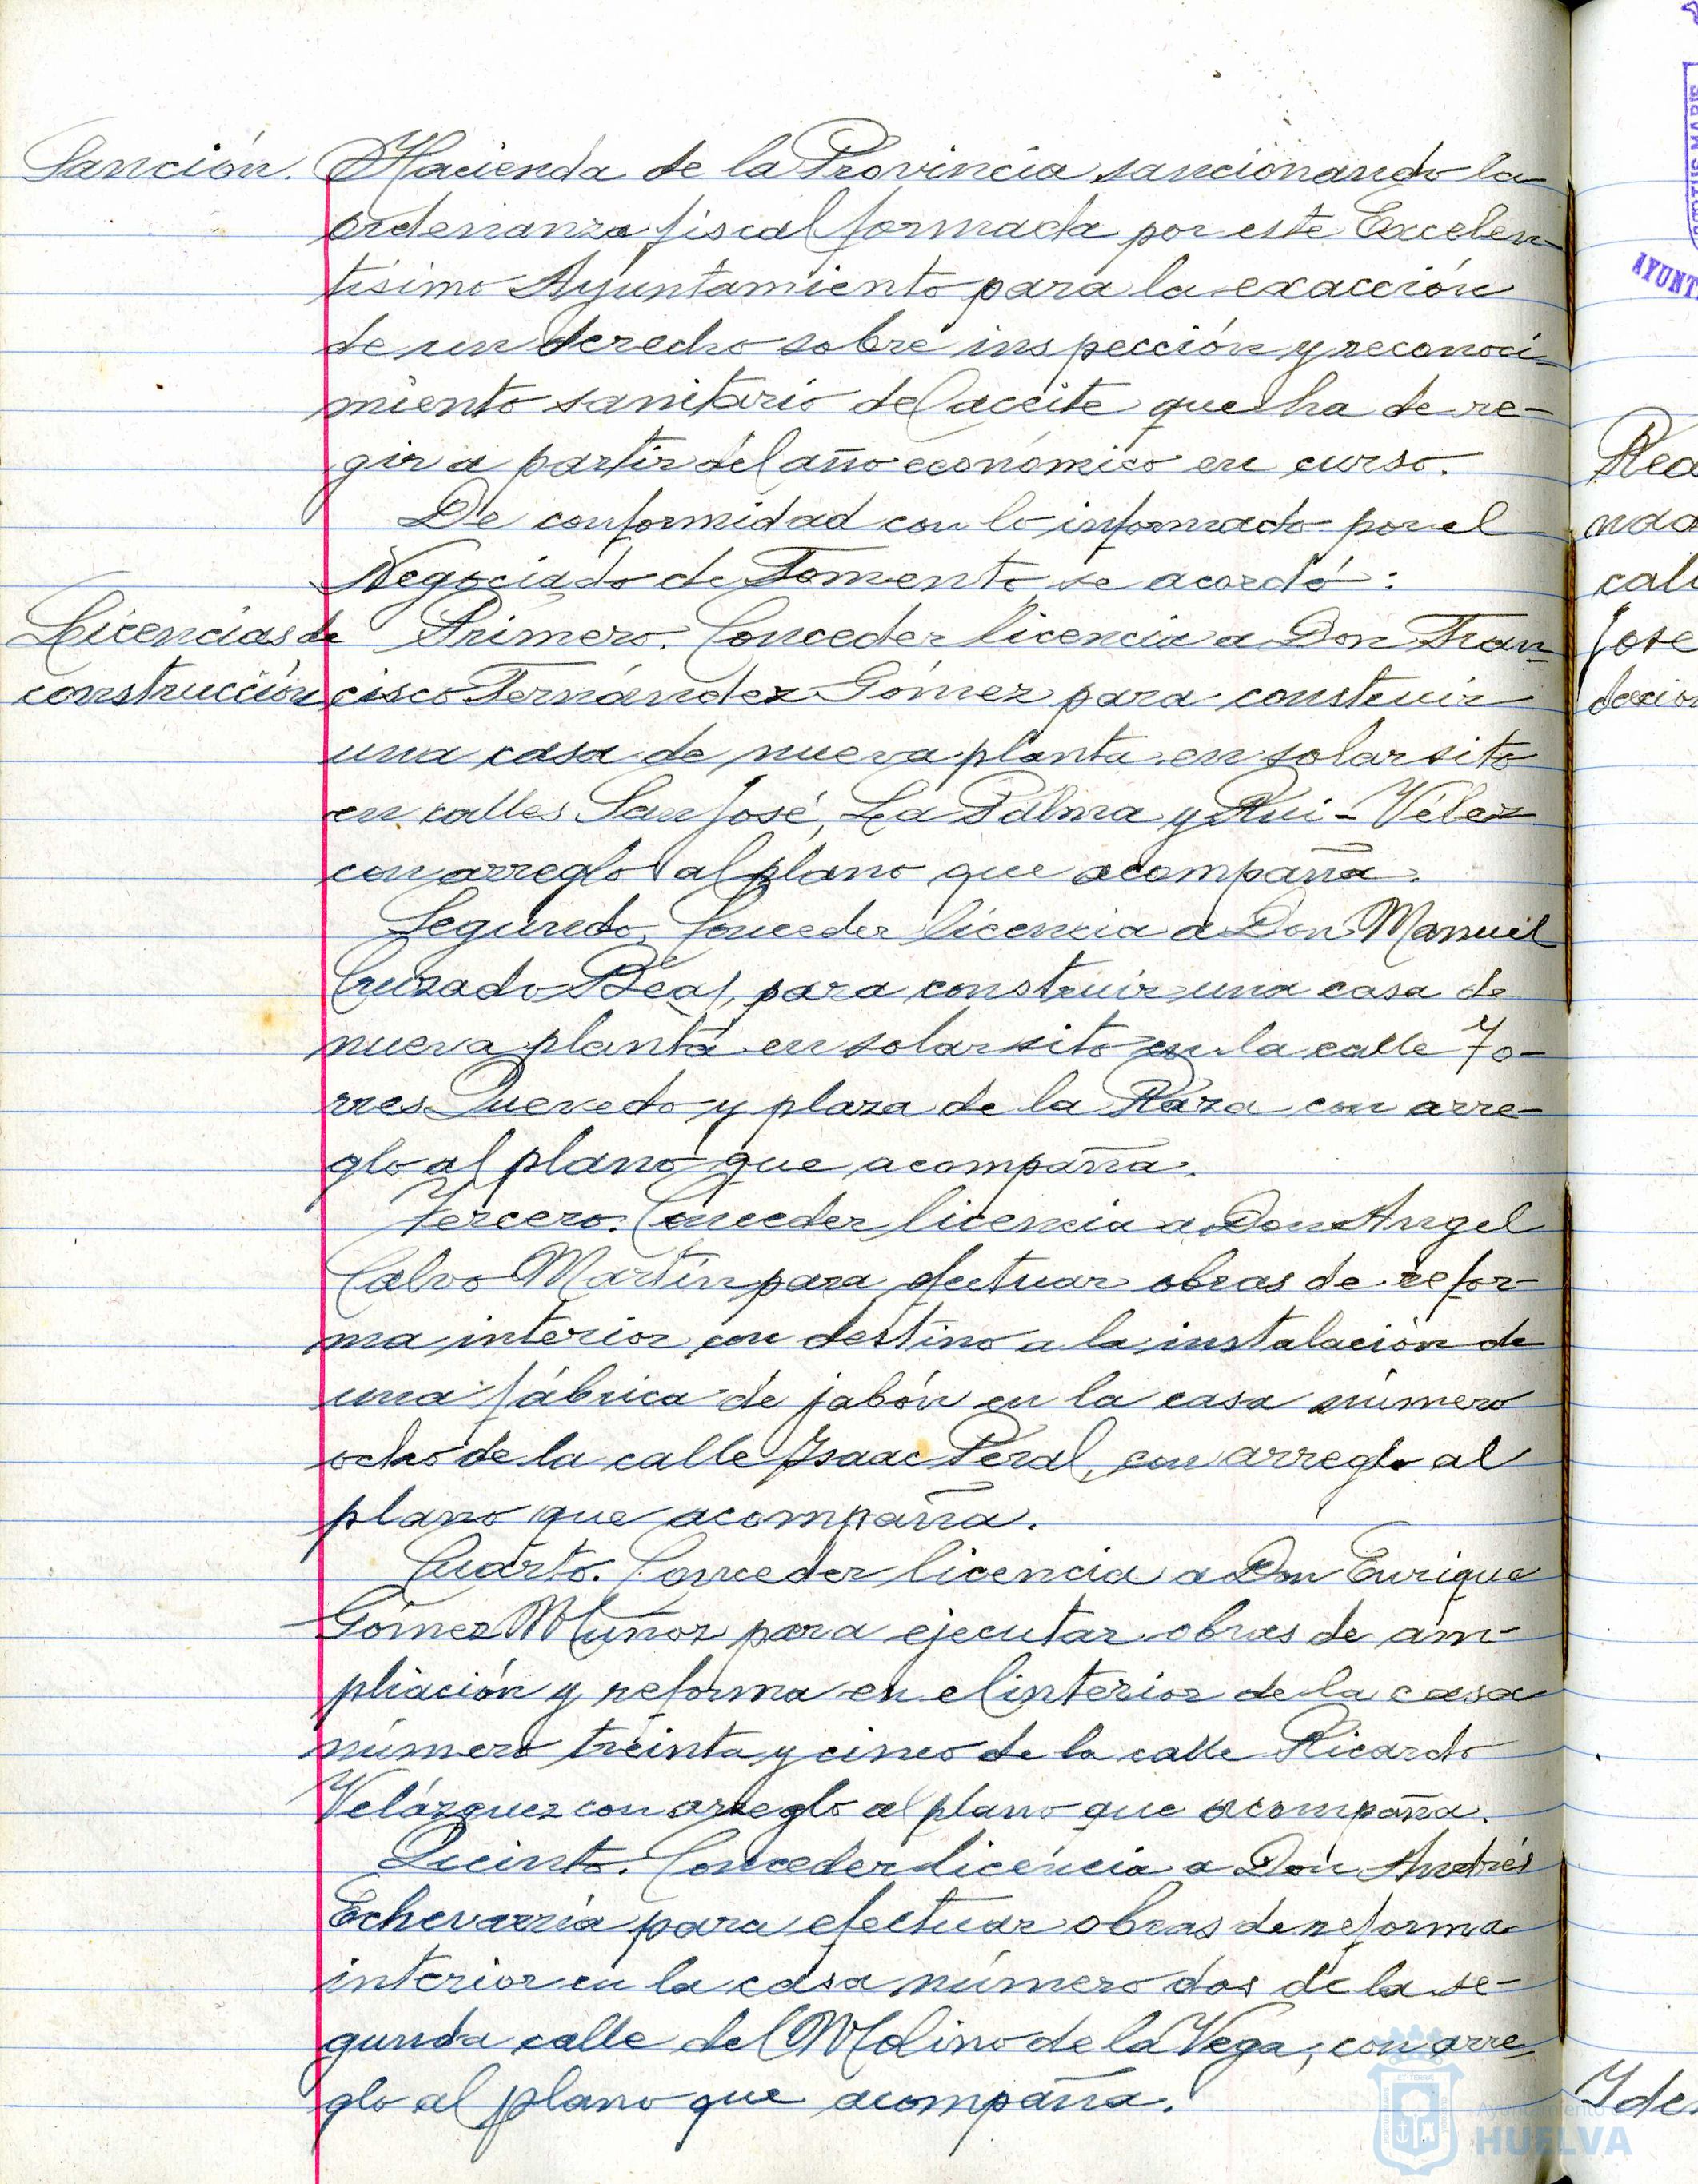 Sanción. Hacienda de la Provincia sancionando la
ordenanza fiscal formada por este Excelen-
tísimo Ayuntamiento para la exacción
de un derecho sobre inspección y reconoci-
miento sanitario del aceite que ha de re-
gir a partir del año económico en curso.
De conformidad con lo informado por el
Negociado de Fomento se acordó:
Licencias de Primero. Conceder licencia a Don Fran-
construcción cisco Fernández Gómez para construir
una casa de nueva planta en solar sito
en calles San José, La Palma y Rui-Vélez
con arreglo al plano que acompaña.
Segundo. Conceder licencia a Don Manuel
Cruzado Béas, para construir una casa de
nueva planta en solar sito en la calle To-
rres Quevedo y plaza de la Raza con arre-
glo al plano que acompaña.
Tercero. Conceder licencia a Don Angel
Calvo Martín para efectuar obras de refor-
ma interior con destino a la instalación de
una fábrica de jabón en la casa número
ocho de la calle Isaac Peral, con arreglo al
plano que acompaña.
Cuarto. Conceder licencia a Don Enrique
Gómez Muñoz para ejecutar obras de am-
pliación y reforma en el interior de la casa
número treinta y cinco de la calle Ricardo
Velázquez con arreglo al plano que acompaña.
Quinto. Conceder licencia a Don Andrés
Echevarría para efectuar obras de reforma
interior en la casa número dos de la se-
gunda calle del Molino de la Vega, con arre-
glo al plano que acompaña.
Ayuntamiento de
HUELVA